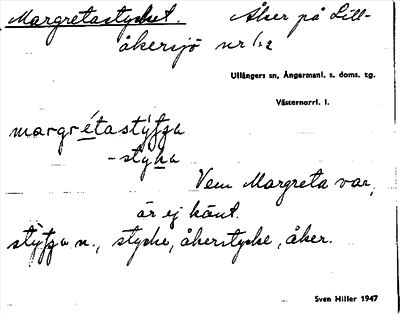 Margretastycket. Åker på Lill-
åkersjö nr 1:2
Ullångers sn, Ångermanl. s. doms. tg.
Västernorrl. l.
margrétastýʃʃa
-styna
Vem Margreta var,
är ej känt.
stýʃʃa n., stycke, åkerstycke, åker.
Sven Hiller 1947